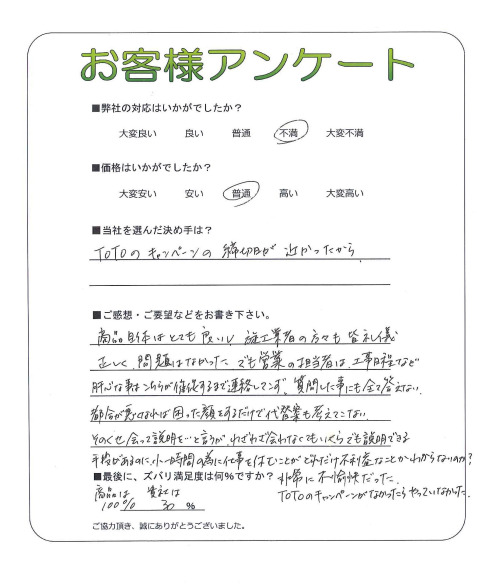 お客様アンケート
■弊社の対応はいかがでしたか？
大変良い 良い 普通 不満 大変不満
■価格はいかがでしたか？
大変安い 安い 普通 高い 大変高い
■当社を選んだ決め手は？
TOTOのキャンペーンの締切日が近かったから
■ご感想・ご要望などをお書き下さい。
商品自体はとても良いし、施工業者の方々も皆礼儀
正しく、問題はなかった。でも営業の担当者は、工事日程など
肝心な事はこちらが催促するまで連絡してこず、質問した事にも全て答えない。
都合が悪くなれば困った顔をするだけで代替案も考えてこない
そのくせ会って説明を…と言うが、わざわざ会わなくてもいくらでも説明できる
手段があるのに、小一時間の為に仕事を休むことがどれだけ不利益なことかわからないのか？
■最後に、ズバリ満足度は何％ですか？ 非常に不愉快だった。
商品は 100% 貴社は 30 %
TOTOのキャンペーンがなかったらやっていなかった。
ご協力頂き、誠にありがとうございました。